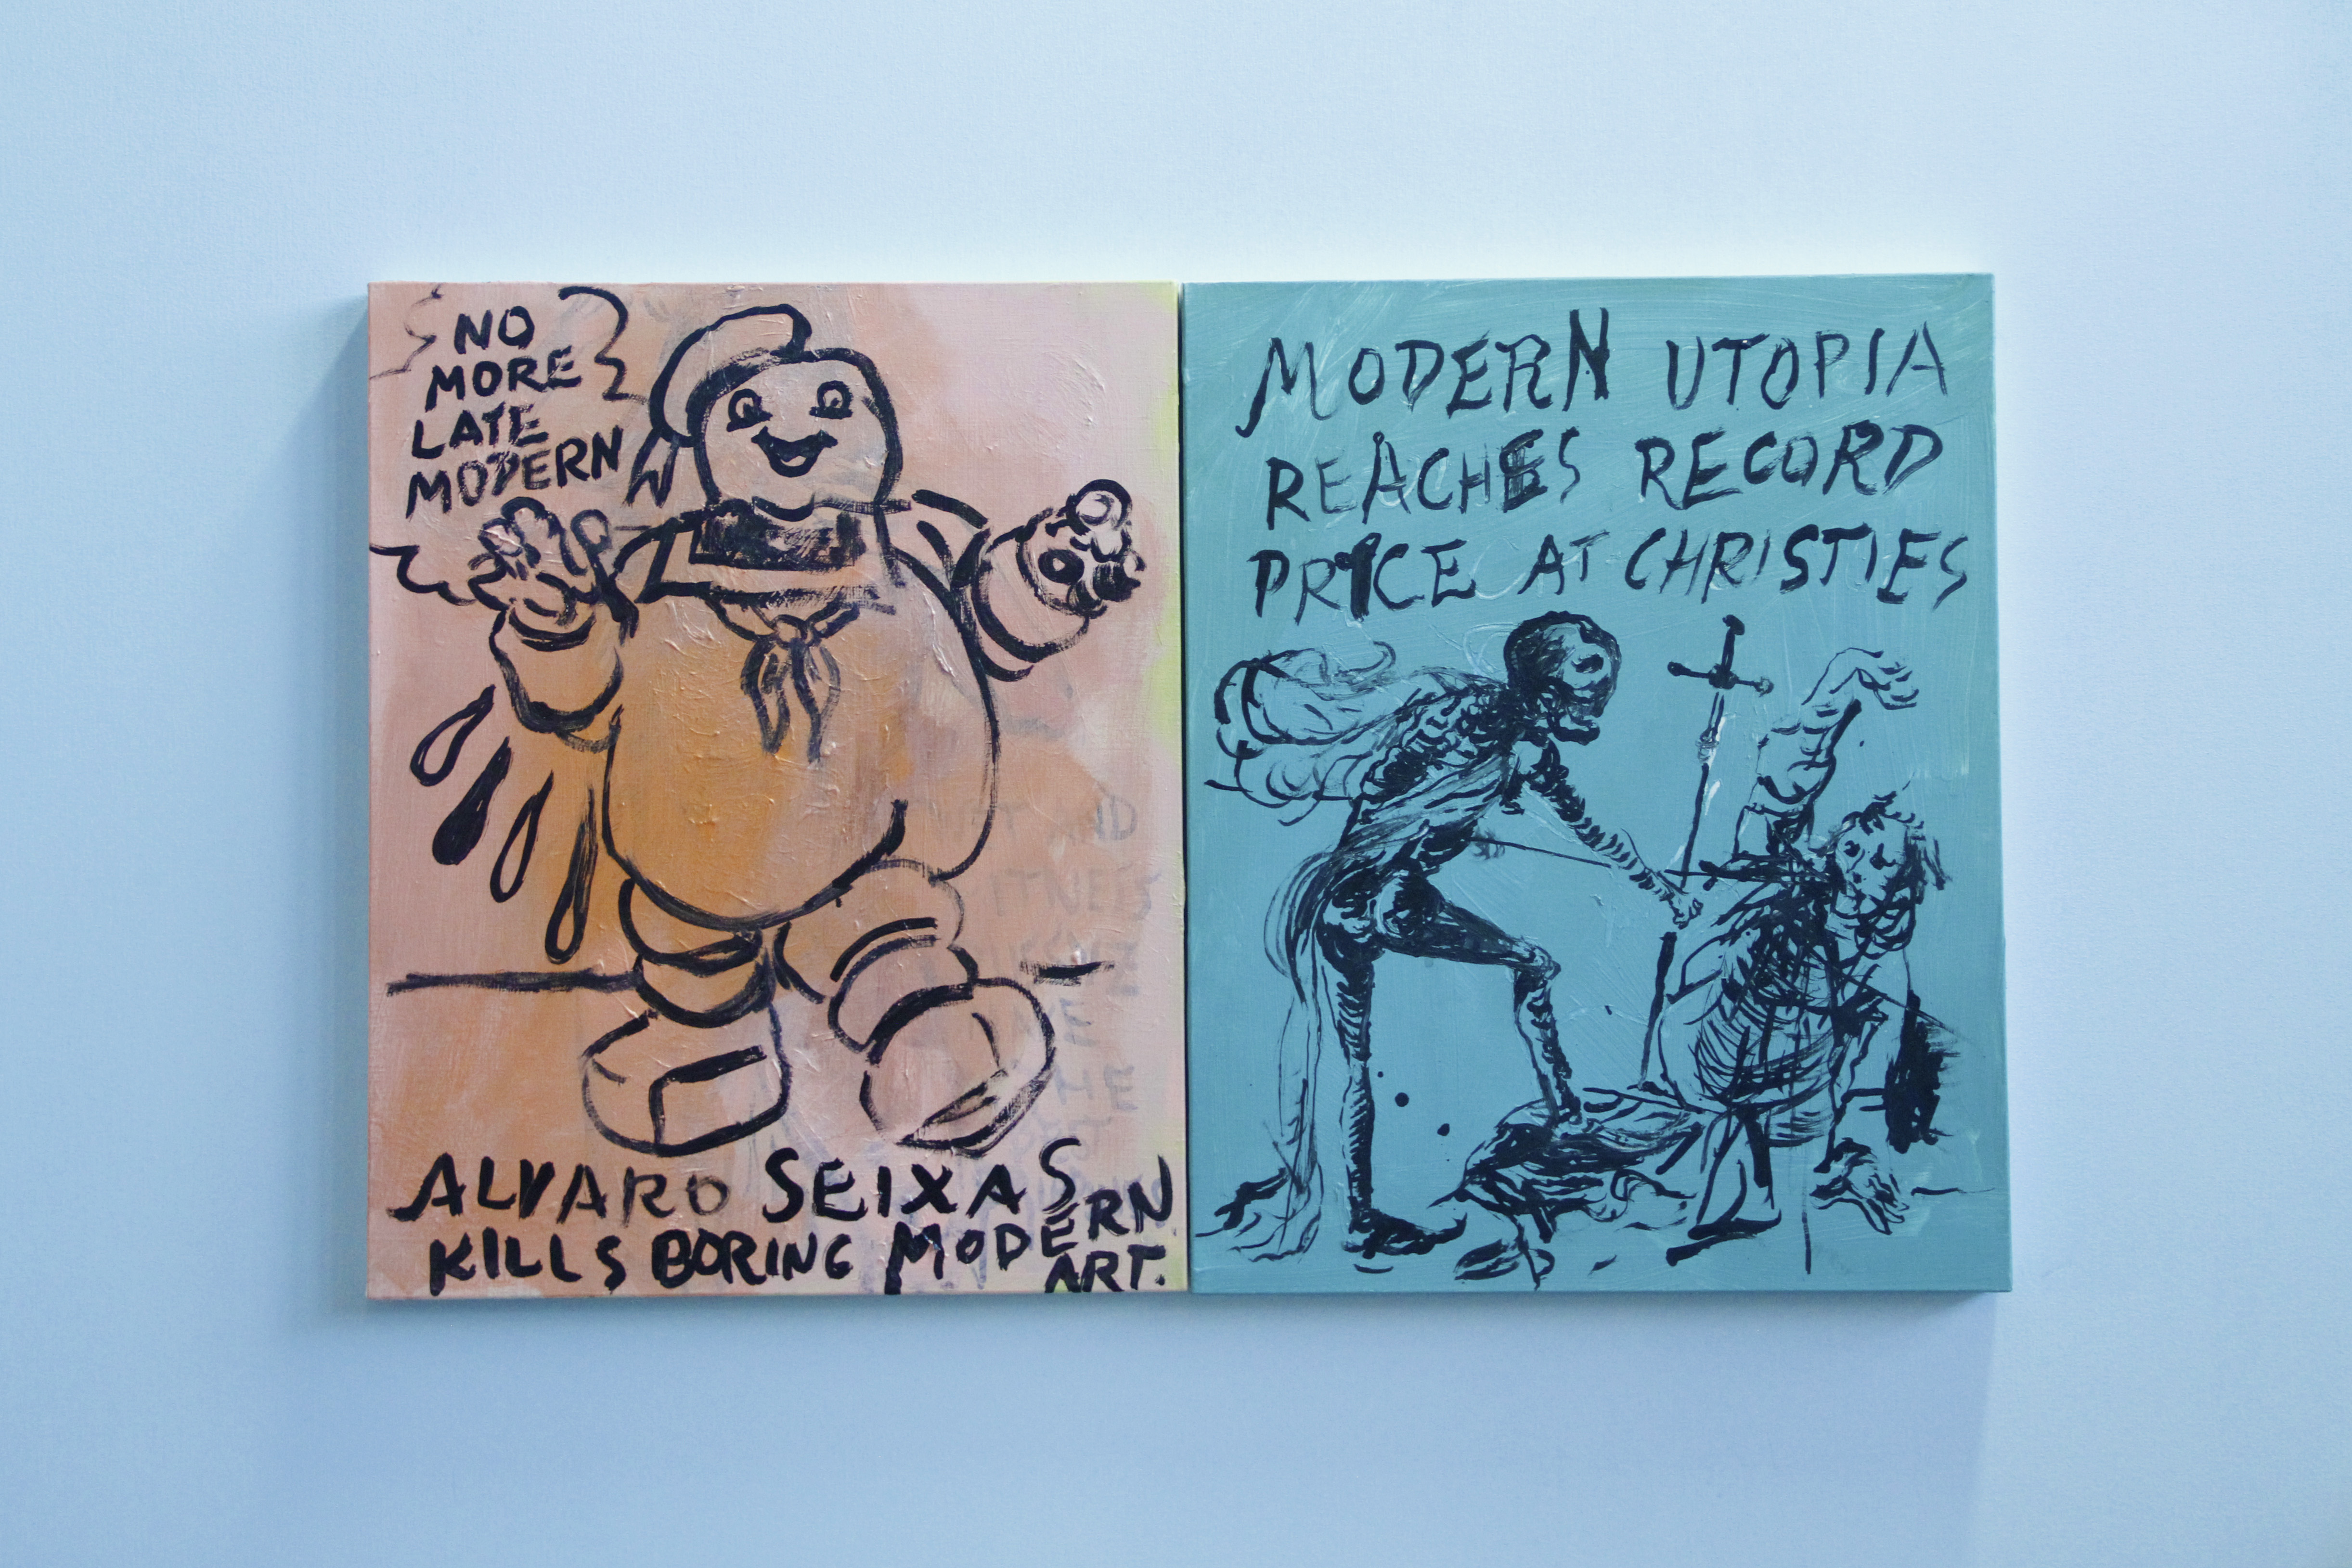 NO
MORE
LATE
MODERN
AND
ALVARO SEIXAS
KILLS BORING MODERN
ART.
MODERN UTOPIA
REACHES RECORD
PRICE AT CHRISTIES